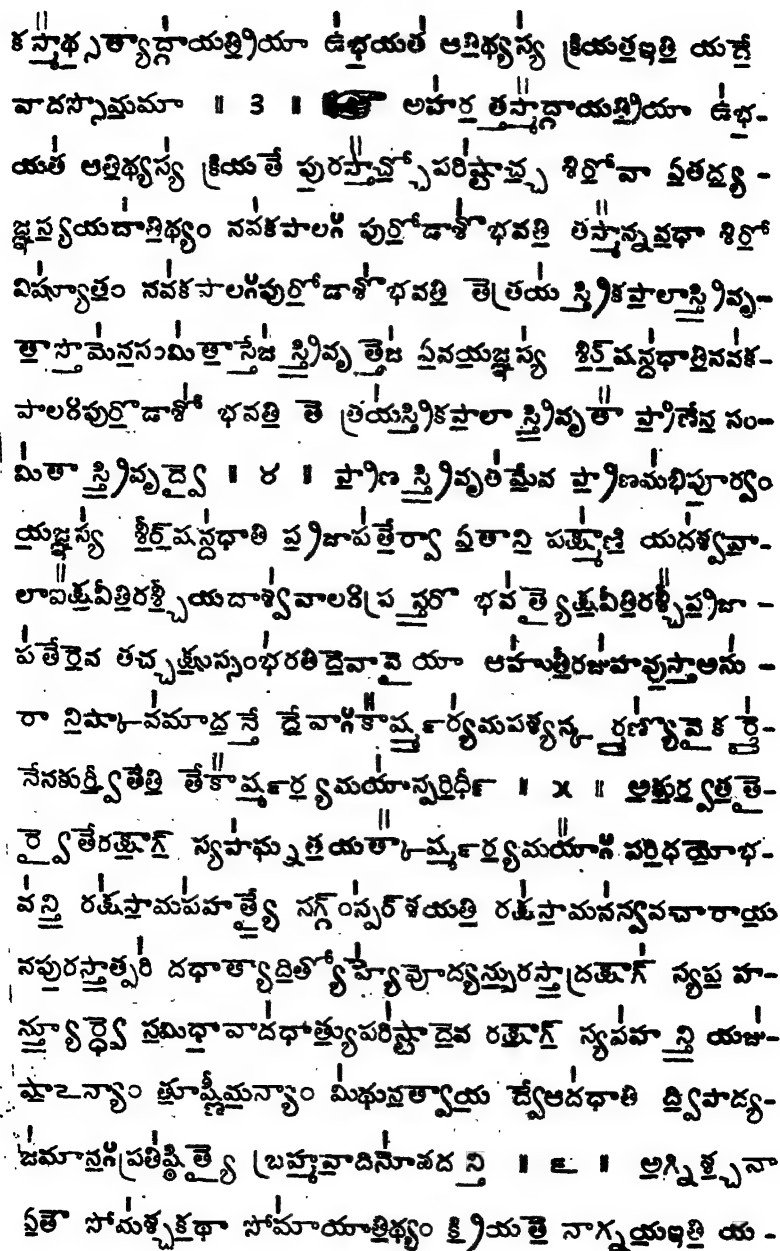 కస్మాథ్సత్యాద్గాయత్రియా ఉభయత ఆతిథ్యస్య క్రియతఇతి యదే
వాదస్సోమమా ॥ ౩ ॥ అహర తస్మాద్గాయత్రియా ఉభ-
యత ఆతిథ్యస్య క్రియతే పురస్తాచ్చోపరిష్టాచ్చ శిరోవా ఏతద్య-
జ్ఞస్యయదాతిథ్యం నవకపాలః పురోడాశోభవతి తస్మాన్నవధా శిరో
విష్యూతం నవకపాలఃపురోడాశోభవతి తేత్రయ స్త్రికపాలాస్త్రివృ-
తాస్తోమేనసంమితాస్తేజ స్త్రివృత్తేజ ఏవయజ్ఞస్య శీర్‌షన్దధాతినవక-
పాలఃపురోడాశో భవతి తే త్రయస్త్రికపాలా స్త్రివృతా ప్రాణేన సం-
మితా స్త్రివృద్వై ॥ ౪ ॥ ప్రాణ స్త్రివృతమేవ ప్రాణమభిపూర్వం
యజ్ఞస్య శీర్‌షన్దధాతి ప్రజాపతేర్వా ఏతాని పక్ష్మాణి యదశ్వవా-
లాఐక్షవీతిరశ్చీయదాశ్వవాలః ప్రస్తరో భవత్యైక్షవీతిరశ్చీప్రజా-
పతేరేవ తచ్చక్షుస్సంభరతిదేవావై యా ఆహుతీరజుహవుస్తాఅసు-
రా నిష్కావమాద న్తే దేవాః కార్ష్మర్యమపశ్యన్క ర్మణ్యోవై కర్మై-
నేనకుర్వీతేతి తేకార్ష్మర్యమయాన్పరిధీన్ ॥ ౫ ॥ అకుర్వతతై-
ర్వైతేరక్షాగ్‌ స్యపాఘ్నతయత్కార్ష్మర్యమయాః పరిధయోభ-
వన్తి రక్షసామపహత్యై సగ్గ్ంస్పర్‌శయతి రక్షసామనన్వవచారాయ
నపురస్తాత్పరి దధాత్యాదిత్యోహ్యేవోద్యన్పురస్తాద్రక్షాగ్‌ స్యప హ-
న్త్యూర్ధ్వే సమిధావాదధాత్యుపరిష్టాదేవ రక్షాగ్‌ స్యపహ న్తి యజు-
షాఽన్యాం తూష్ణీమన్యాం మిథునత్వాయ ద్వేఆదధాతి ద్విపాద్య-
జమానఃప్రతిష్ఠిత్యై బ్రహ్మవాదినోవద న్తి ॥ ౬ ॥ అగ్నిశ్చవా
ఏతౌ సోమశ్చకథా సోమాయాతిథ్యం క్రియతే నాగ్నయఇతి య-